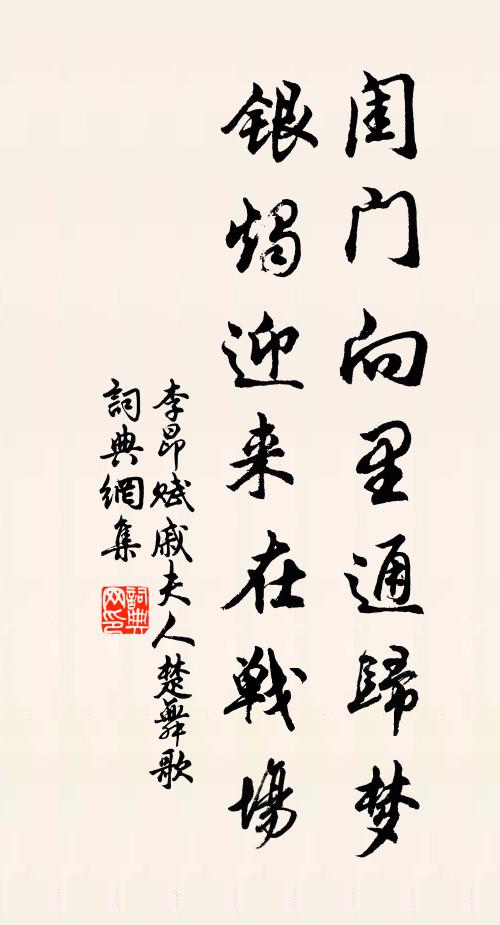 闺门向里通歸梦
银燭迎来在戰場
李昂赋戚夫人楚舞歌
詞典網集
詞典
网印